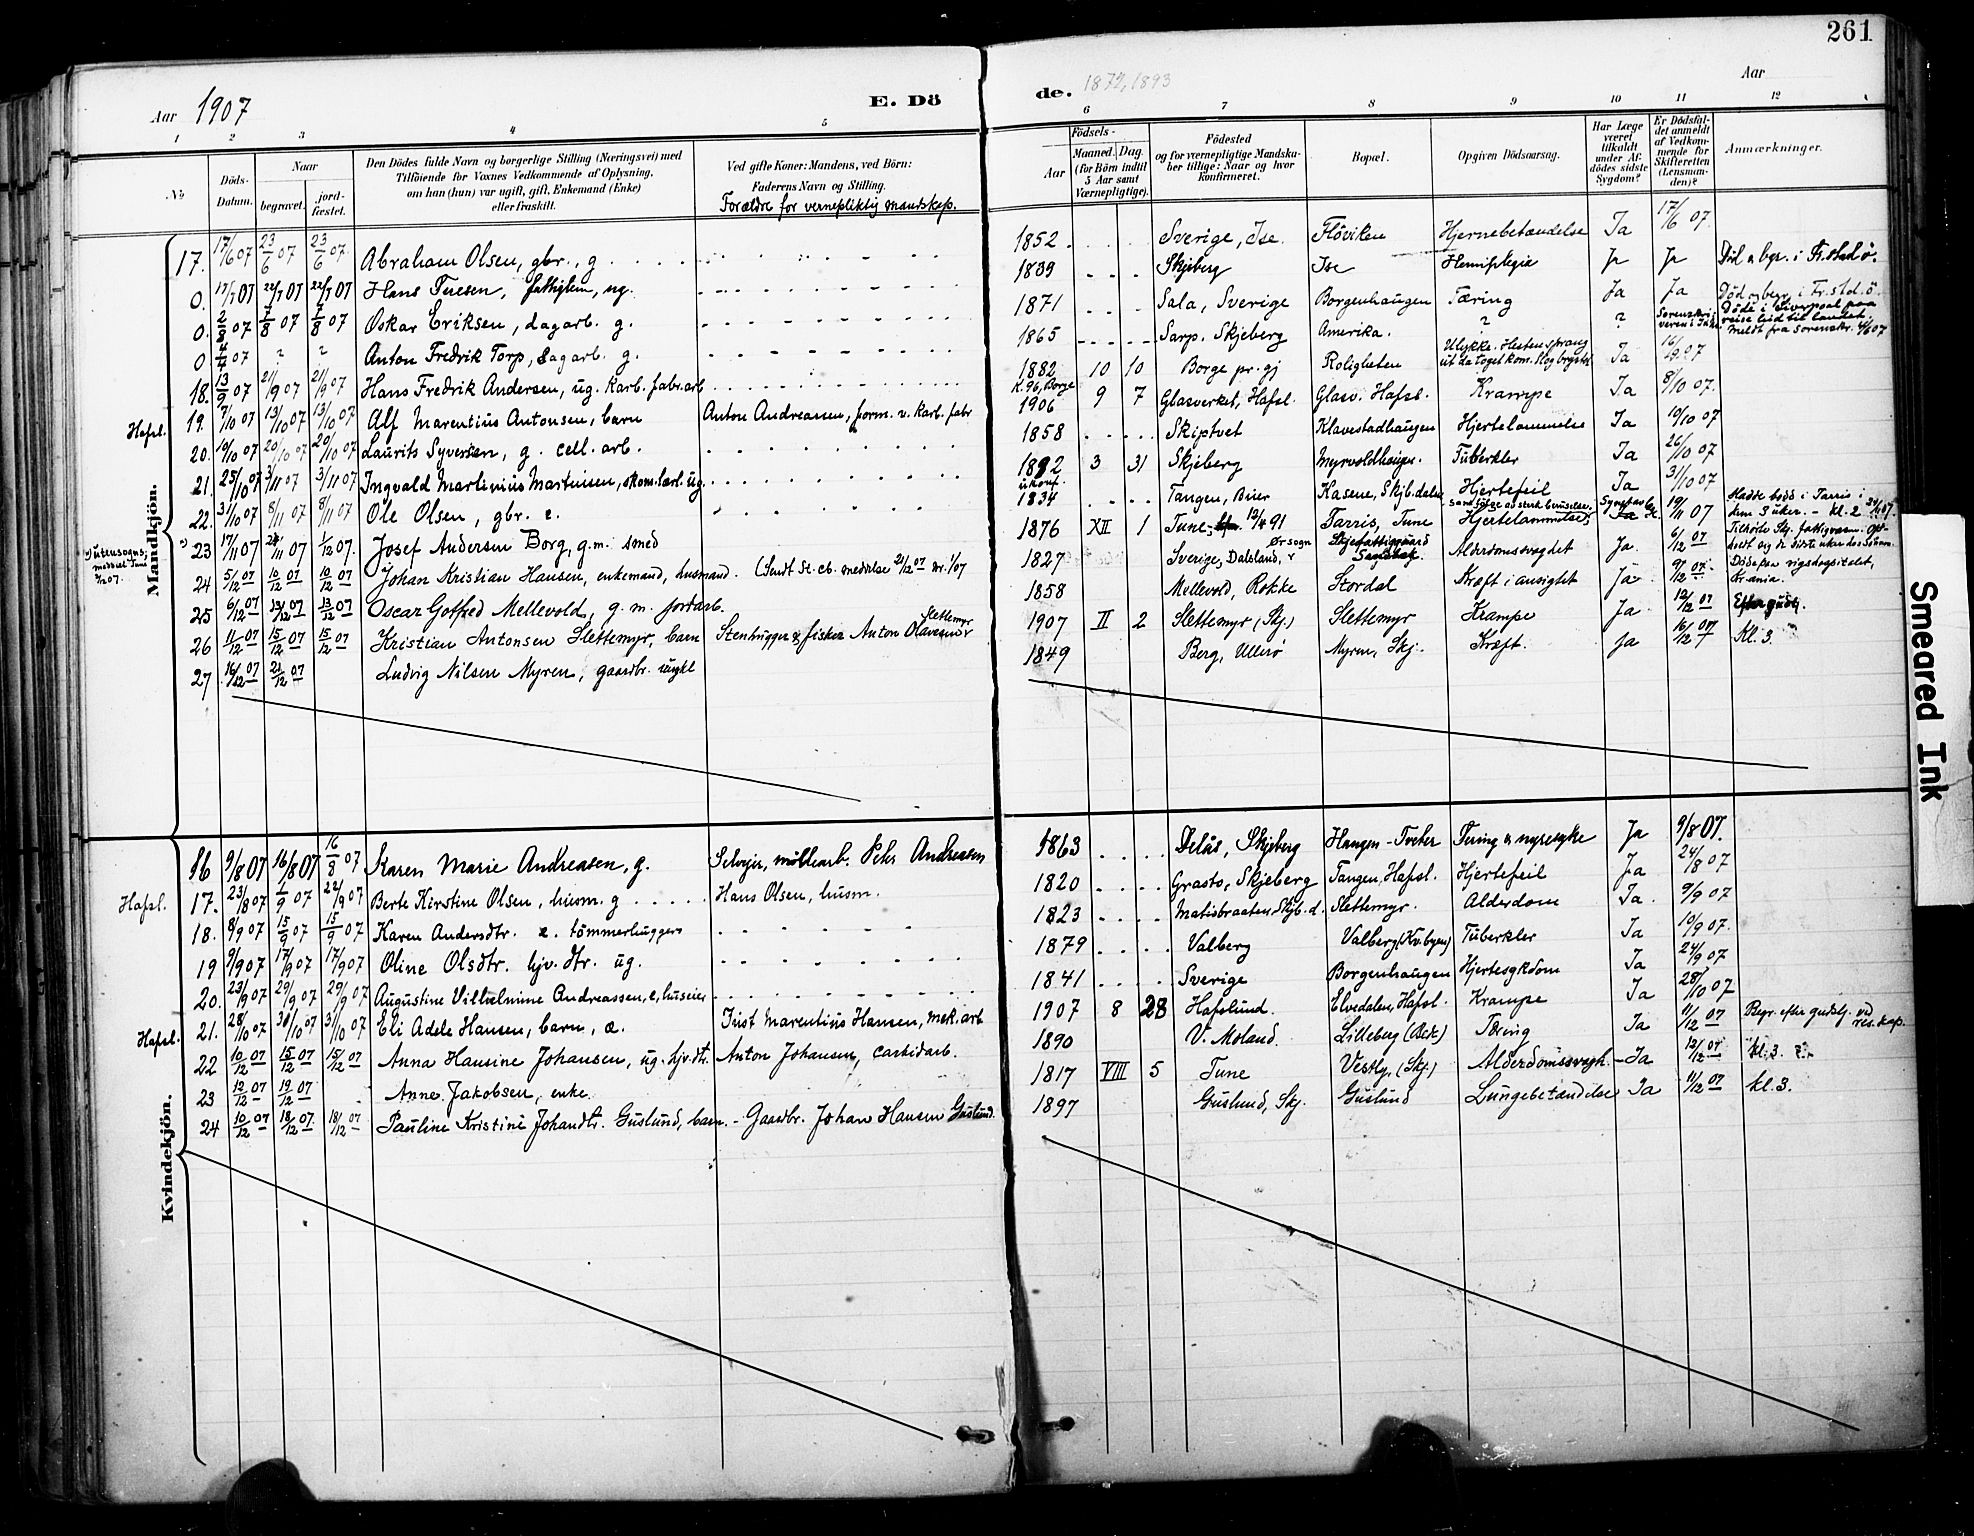 261
Aar 1907
E. Dö
de. 1872, 1893
Aar
1 2 3 4 5 6 7 8 9 10 11 12
No
Döds-Datum.
Naar
begravet.
jord-fæstet.
Den Dödes fulde Navn og borgerlige Stilling (Næringsvei) med
Tilföiende for Voxnes Vedkommende af Oplysning,
om han (hun) var ugift, gift, Enkemand (Enke)
eller fraskilt.
Ved gifte Koner: Mandens, ved Börn:
Faderens Navn og Stilling.
Forældre for vernepliktig mandskap.
Födsels-
Aar
Maaned. Dag.
(for Börn indtil
5 Aar samt
Værnepligtige).
Födested
og for værnepligtige Mandska-
ber tillige: Naar og hvor
konfirmeret.
Bopæl.
Opgiven Dödsaarsag.
Har Læge
været
tilkaldt
under Af-
dödes sidste
Sygdom?
Er Dödsfal-
det anmeldt
af Vedkom-
mende for
Skifteretten
(Lensman-
den)?
Anmærkninger.
Mandkjön.
17. 17/6 07 23/6 07 23/6 07 Abraham Olsen, gbr., g. 1852 Sverige, Ise. Flöviken Hjernebetændelse Ja 17/6 07.
0. 17/7 07 22/7 07 22/7 07 Hans Iversen, fattiglem, ug. 1839 Skjeberg Ise Hemiplegia Ja Ja Död & begr. i Fr.stad ö.
0. 2/8 07 7/8 07 7/8 07 Oskar Eriksen, dagarb. g. 1871 Sala, Sverige Borgenhaugen Tæring Ja Ja Död og begr. i Fr.std. ö.
0 4/4 07 ? ? Anton Fredrik Torp, dagarb. g. 1865 Sarp. Skjeberg Amerika. ? ? Döde i Liverpool paa reise hid til landet. meldt fra sorenskr.
18. 13/9 07 21/9 07 21/9 07 Hans Fredrik Andersen, ug. Karb. fabr. arb. 1882 K. 96, Borge 10 10 Borge pr. gj Roligheten Ulykke. Hesten sprang ut da toget kom. Ja 16/9 07
Hafsl. 19. 7/10 07 13/10 07 13/10 07 Alf Marentius Antonsen, barn Anton Andreassen, form. v. Karb. fabr 1906 9 7 Glasverket, Hafsl. Glasv. Hafsl. Krampe Ja 8/10 07.
20. 19/10 07 20/10 07 20/10 07 Laurits Syversen, g. cell. arb. 1858 Skiptvet Klavestadhaugen Hjertelammelse Ja 19/10 07
21. 25/10 07 3/11 07 3/11 07 Ingvald Martinius Martinisen, skom. lærl. ug. 1892 ukonf. 3 31 Skjeberg Myrvoldhaugen. Tuberkler Ja 26/10 07
22. 31/10 07 8/11 07 8/11 07 Ole Olsen, gbr. e. 1834 Tangen, Buer Kasene, Skjb. dalen Hjertefeil Ja 31/10 07
1) utensogns; meddelt Tune
1) 23 17/11 07 24/11 07 1/12 07. Josef Andersen Borg, g. m. smed 1876 XII 1 Tune, 12/4 91 Tarris, Tune Hjertelammelse, som fölge af sterk beruselse. 19/11 07 Hadde bodd i Tarris i kun 3 uker. - kl. 2
24 5/12 07 10/12 07 10/12 07 Johan Kristian Hansen, enkemand, husmand. (Sendt St. cb. meddelse 21/12 07 nr. 1/07 1827 Sverige, Dalsland, Ør sogn Alderdomssvaghet Ja 6/12 07 Tilhörte Skj. fattigvæsen.
25 6/12 07 13/12 07 13/12 07 Oscar Gotfred Mellevold, g. m. jordarb. 1858 Mellevold, Rokke Stordal Kræft i ansigtet Ja 9/12 07. Döde paa rigshospitalet, Kr.ania.
26 11/12 07 15/12 07 15/12 07 Kristian Antonsen Slettemyr, barn Stenhugger & fisker Anton Olavesen Slettemyr 1907 II 2 Slettemyr (Skj.) Slettemyr Krampe Ja 12/12 07 Efter gudtj.
27 16/12 07 21/12 07 Ludvig Nilsen Myren, gaardbr. ugift 1849 Berg, Ullerö Myren, Skj. Kræft. Ja 16/12 07 Kl. 3.
Kvindekjön.
16 9/8 07 16/8 07 16/8 07 Karen Marie Andreasen, g. Selveier, möllearb. Peter Andreasen 1863 Delås, Skjeberg Haugen - Tveter Tering & nyresyke Ja 9/8 07.
Hafsl. 17. 23/8 07 1/9 07 22/9 07 Berte Kirstine Olsen, husm. g Hans Olsen, husm. 1820 Grasto, Skjeberg Tangen, Hafsl. Hjertefeil Ja 24/8 07
18. 8/9 07 15/9 07 15/9 07 Karen Andersdtr. e. tömmerhuggers 1823 Matisbraaten, Skjb. d. Slettemyr. Alderdom Ja. 9/9 07
19 9/9 07 17/9 07 17/9 07 Oline Olsdtr. hjv. dtr. ug. 1879 Valberg Valberg (Kv. byen) Tuberkler Ja 10/9 07.
20. 23/9 07 29/9 07 29/9 07 Augustine Vilhelmine Andreassen, e, huseier 1841 Sverige Borgenhaugen Hjertesygdom Ja 24/9 07
Hafsl. 21. 28/10 07 31/10 07 31/10 07 Eli Adele Hansen, barn, æ. Just Marentius Hansen, mek. arb 1907 8 28 Hafslund. Elvedalen, Hafsl. Krampe Ja 28/10 07
22 10/12 07 15/12 07 15/12 07 Anna Hansine Johansen, ug. hjv. dtr. Anton Johansen, carbidarb. 1890 V. Moland. Lilleborg Tæring Ja 11/12 07 Begr. efter gudstj. ved res. kap.
23 12/12 07 19/12 07 Anne Jakobsen, enke. 1817 VIII 5 Tune Vestby. (Skj.) Alderdomssvagh. - Ja 12/12 07 kl. 3.
24 10/12 07 18/12 07. 18/12 07 Pauline Kristine Johandtr. Guslund, barn. - Gaardbr. Johan Hansen Guslund. 1897 Guslund, Skj. Guslund Lungebetændelse Ja 11/12 07 kl. 3.
Smeared Ink